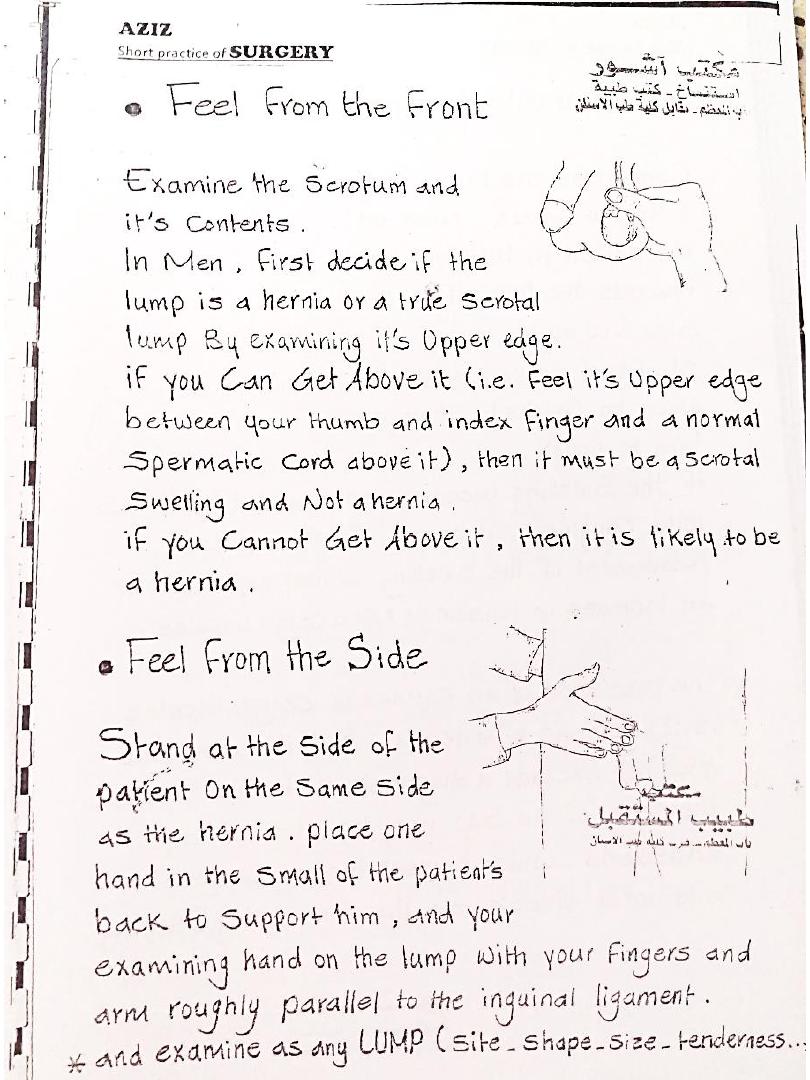 AZIZ
Short practice of SURGERY
مكتب آشور
استنساخ - كتب طبية
باب المعظم - مقابل كلية طب الاسنان
• Feel From the Front
Examine the Scrotum and
it's Contents .
In Men , First decide if the
lump is a hernia or a true Scrotal
lump By examining it's Upper edge.
if you Can Get Above it (i.e. Feel it's Upper edge
between your thumb and index Finger and a normal
Spermatic Cord above it) , then it must be a Scrotal
Swelling and Not a hernia .
if you Cannot Get Above it , then it is likely to be
a hernia .
• Feel From the Side
Stand at the Side of the
patient On the Same Side
as the hernia . place one
hand in the Small of the patient's
back to Support him , and your
examining hand on the lump with your Fingers and
arm roughly parallel to the inguinal ligament .
* and examine as any LUMP ( Site - Shape - Size - tenderness...
مكتب
طبيب المستقبل